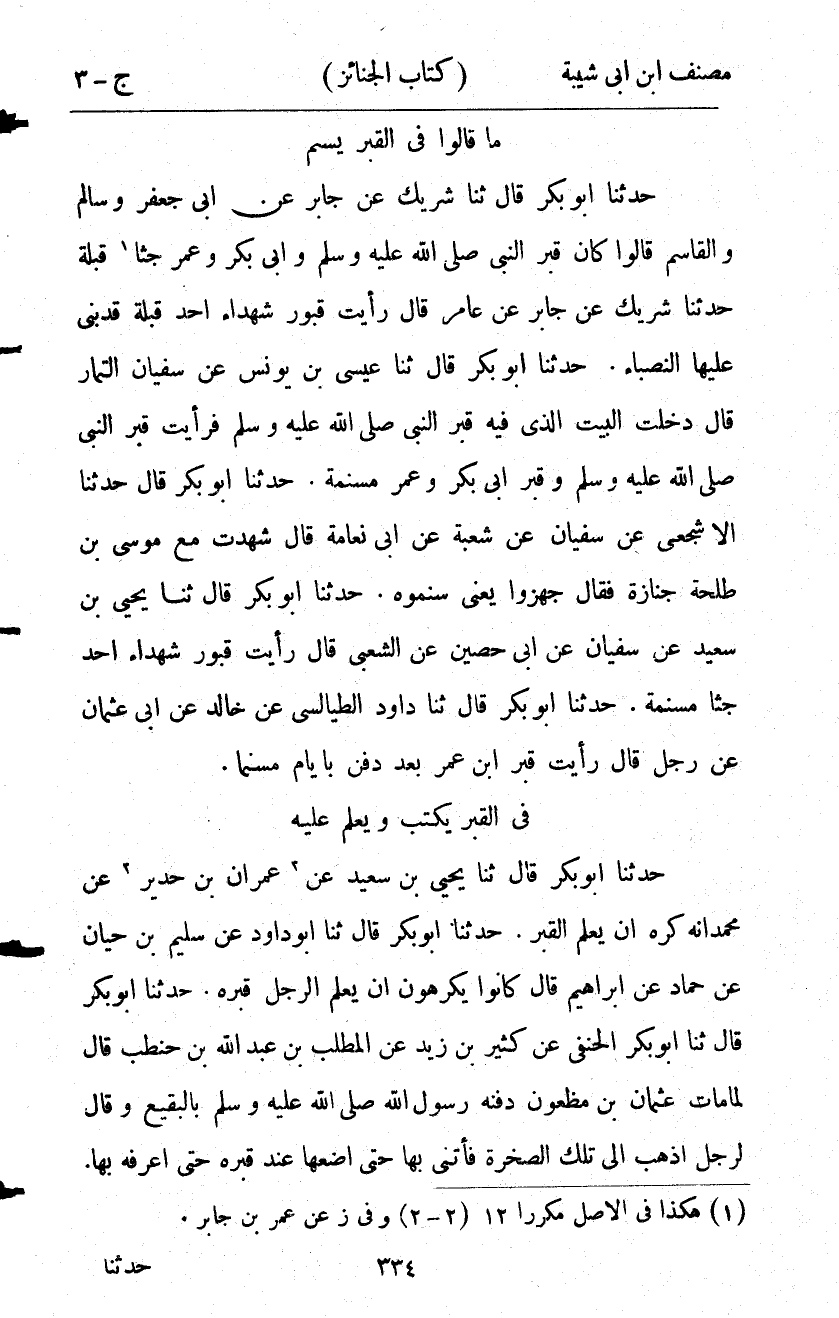 مصنف ابن ابى شيبة (كتاب الجنائز) ج - ٣
ما قالوا فى القبر يسنم
حدثنا ابو بكر قال ثنا شريك عن جابر عن ابى جعفر و سالم
و القاسم قالوا كان قبر النبى صلى الله عليه و سلم و ابى بكر و عمر جثا ١ قبلة
حدثنا شريك عن جابر عن عامر قال رأيت قبور شهداء احد قبلة قدبنى
عليها النصباء . حدثنا ابو بكر قال ثنا عيسى بن يونس عن سفيان التمار
قال دخلت البيت الذى فيه قبر النبى صلى الله عليه و سلم فرأيت قبر النبى
صلى الله عليه و سلم و قبر ابى بكر و عمر مسنمة . حدثنا ابو بكر قال حدثنا
الاشجعى عن سفيان عن شعبة عن ابى نعامة قال شهدت مع موسى بن
طلحة جنازة فقال جهزوا يعنى سنموه . حدثنا ابو بكر قال ثنا يحيى بن
سعيد عن سفيان عن ابى حصين عن الشعبى قال رأيت قبور شهداء احد
جثا مسنمة . حدثنا ابو بكر قال ثنا داود الطيالسى عن خالد عن ابى عثمان
عن رجل قال رأيت قبر ابن عمر بعد دفن بايام مسنما .
فى القبر يكتب و يعلم عليه
حدثنا ابوبكر قال ثنا يحيى بن سعيد عن ٢ عمران بن حدير ٢ عن
محمدانه كره ان يعلم القبر . حدثنا ابوبكر قال ثنا ابوداود عن سليم بن حيان
عن حماد عن ابراهيم قال كانوا يكرهون ان يعلم الرجل قبره . حدثنا ابوبكر
قال ثنا ابوبكر الحنفى عن كثير بن زيد عن المطلب بن عبد الله بن حنطب قال
لمامات عثمان بن مظعون دفنه رسول الله صلى الله عليه و سلم بالبقيع و قال
لرجل اذهب الى تلك الصخرة فأتنى بها حتى اضعها عند قبره حتى اعرفه بها.
(١) هكذا فى الاصل مكررا ١٢ (٢-٢) و فى ز عن عمر بن جابر .
٣٣٤ حدثنا